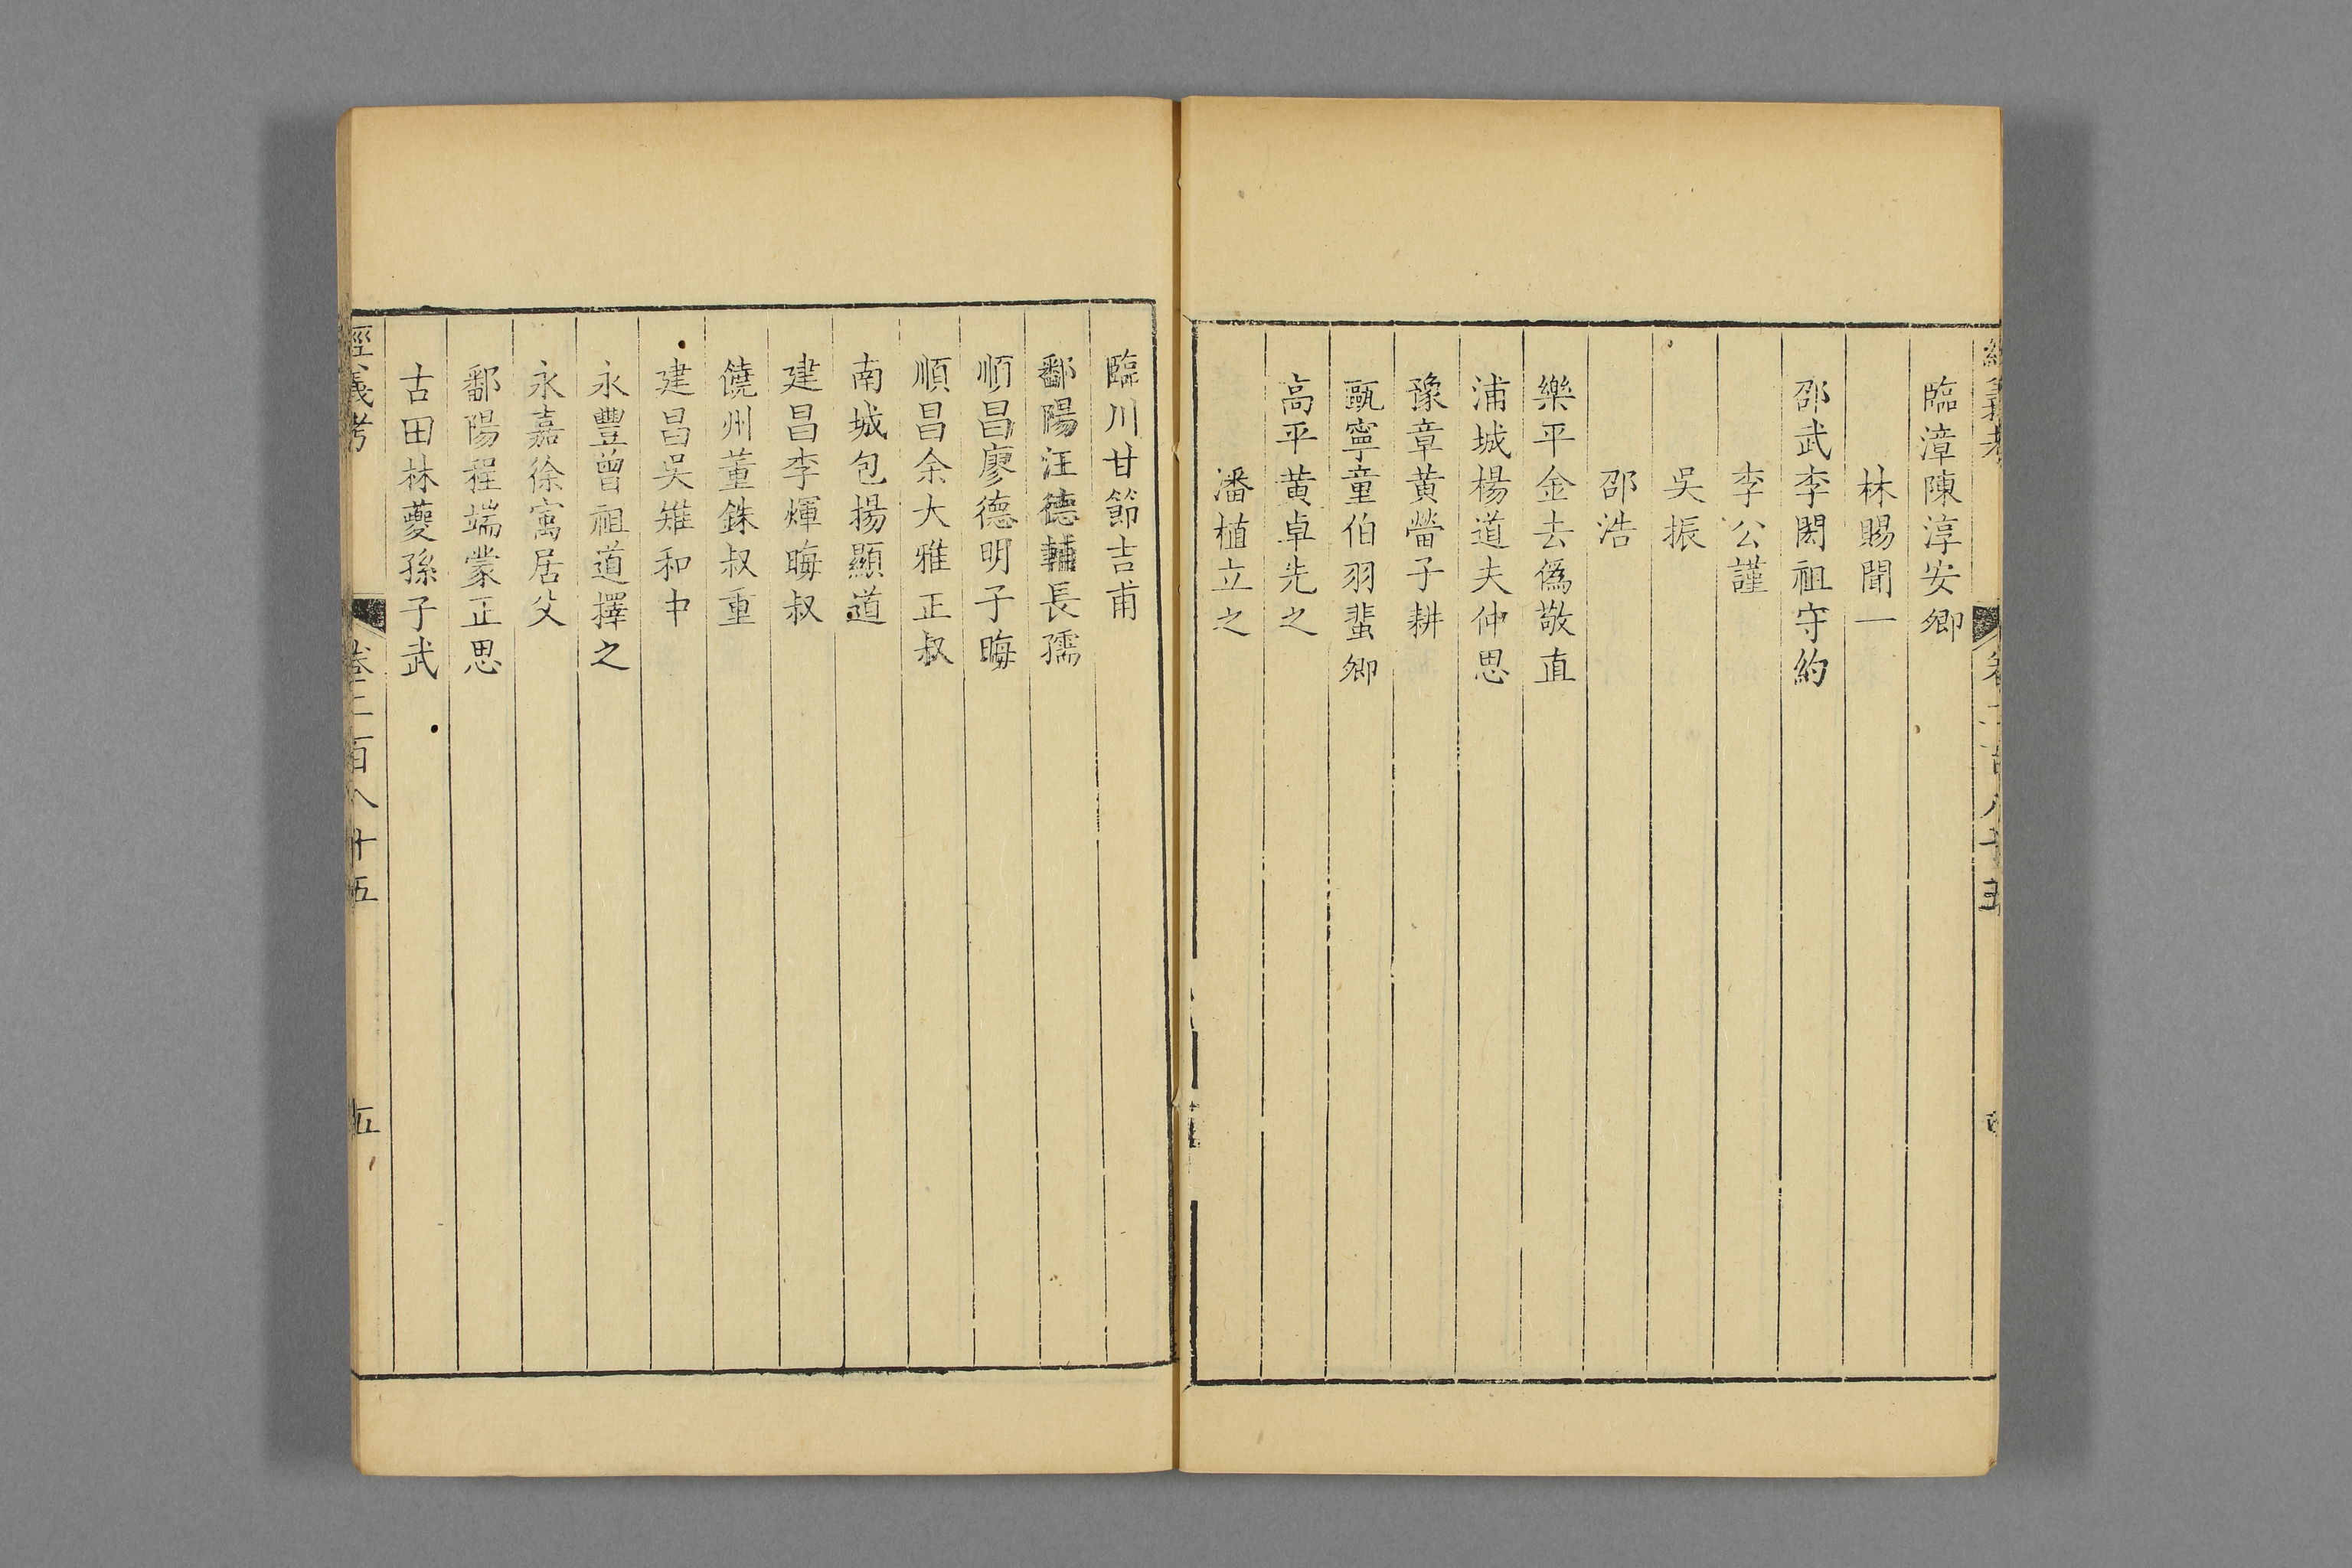 臨漳陳淳安卿
林賜聞一
邵武李閎祖守約
李公謹
吳振
邵浩
樂平金去僞敬直
浦城楊道夫仲思
豫章黃㽦子耕
甌寧童伯羽蜚卿
高平黃卓先之
潘植立之
臨川甘節吉甫
鄱陽汪德輔長孺
順昌廖德明子晦
順昌余大雅正叔
南城包揚顯道
建昌李煇晦叔
饒州董銖叔重
建昌吳雉和中
永豐曾祖道擇之
永嘉徐㝢居父
鄱陽程端蒙正思
古田林夔孫子武
經義考 卷二百八十五 五